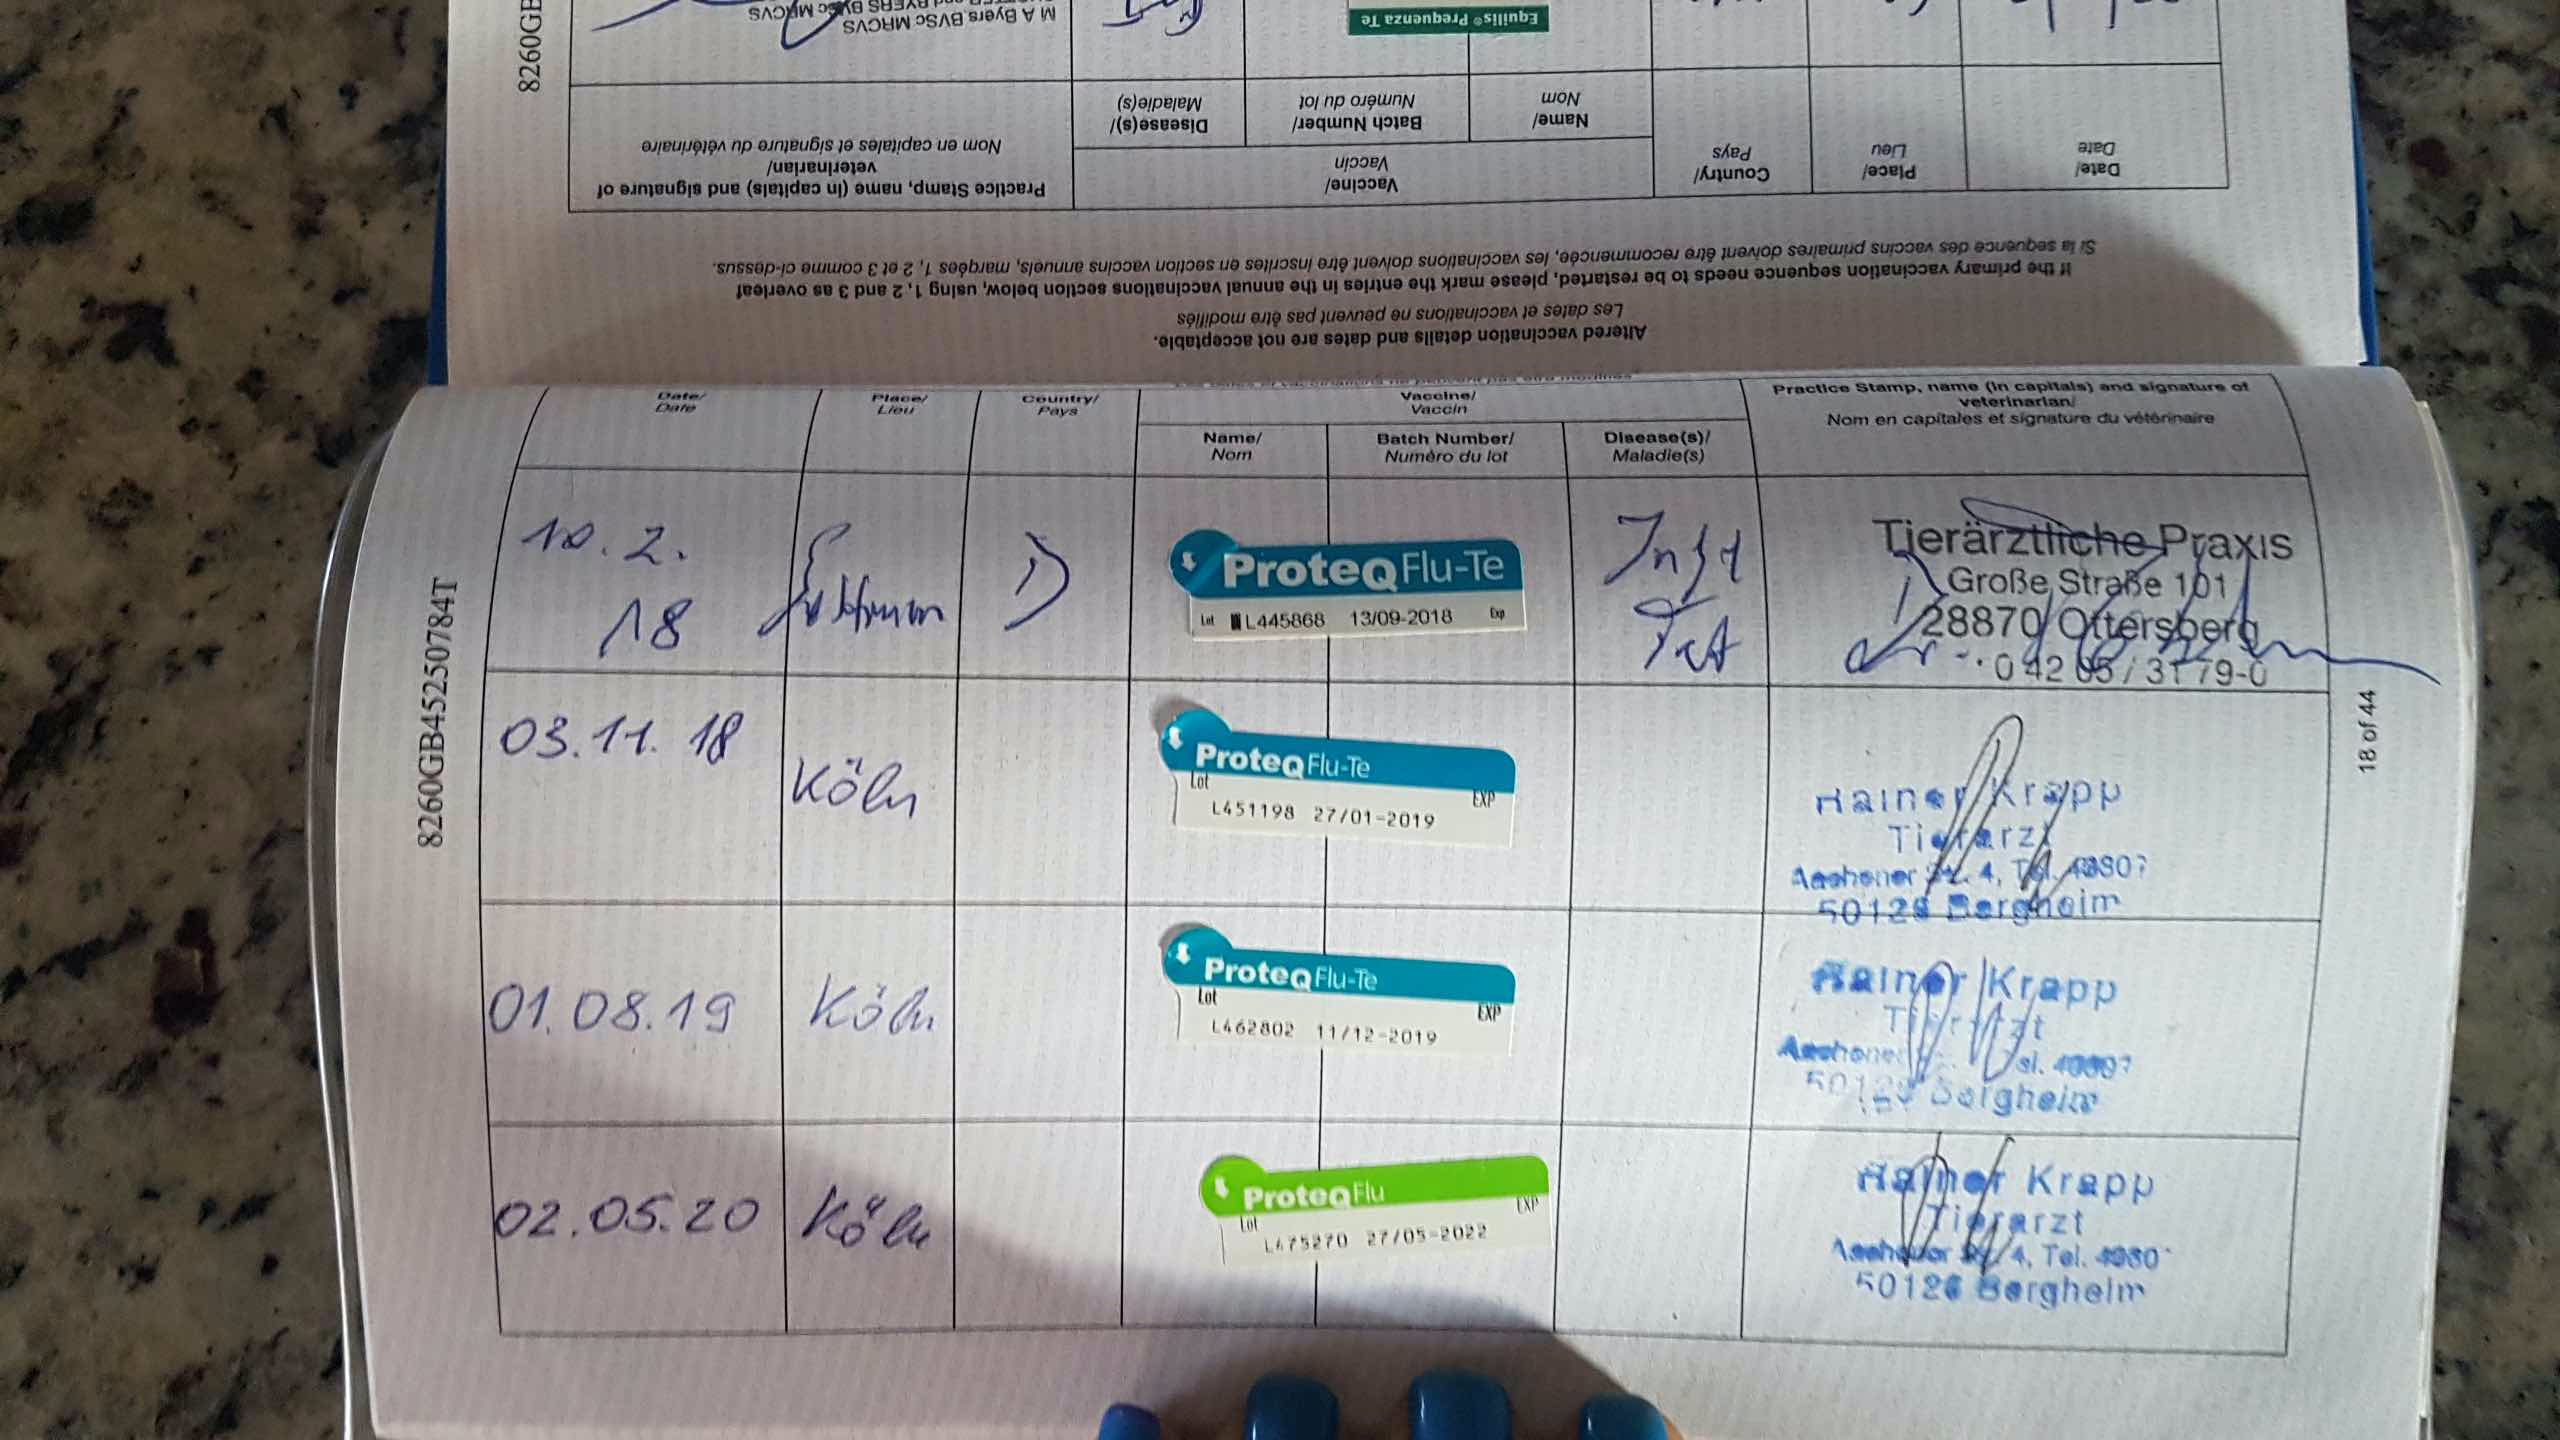 8260GB
M A Byers BVSc MRCVS
BYERS BVSc MRCVS
Equilis® Prequenza Te
Date/
Date
Place/
Lieu
Country/
Pays
Vaccine/
Vaccin
Name/
Nom
Batch Number/
Numéro du lot
Disease(s)/
Maladie(s)
Practice Stamp, name (in capitals) and signature of
veterinarian/
Nom en capitales et signature du vétérinaire
Si la sequence des vaccins primaires doivent être recommencée, les vaccinations doivent être inscrites en section vaccins annuels, marqées 1, 2 et 3 comme ci-dessus.
If the primary vaccination sequence needs to be restarted, please mark the entries in the annual vaccinations section below, using 1, 2 and 3 as overleaf
Les dates et vaccinations ne peuvent pas être modifiés
Altered vaccination details and dates are not acceptable.
8260GB45250784T
18 of 44
Date/
Date
Place/
Lieu
Country/
Pays
Vaccine/
Vaccin
Name/
Nom
Batch Number/
Numéro du lot
Disease(s)/
Maladie(s)
Practice Stamp, name (in capitals) and signature of
veterinarian/
Nom en capitales et signature du vétérinaire
10.2.
18
D
ProteqFlu-Te
Lot L445868 13/09-2018 Exp
Tierärztliche Praxis
Große Straße 101
28870 Ottersberg
0 42 05 / 31 79-0
03.11.18
Köln
ProteqFlu-Te
Lot EXP
L451198 27/01-2019
Rainer Krapp
Tierarzt
Aachener Str. 4, Tel.
50126 Bergheim
01.08.19
Köln
ProteqFlu-Te
Lot EXP
L462802 11/12-2019
Rainer Krapp
Tierarzt
Aachener
Bergheim
02.05.20
Köln
ProteqFlu
Lot EXP
L475270 27/05-2022
Rainer Krapp
Tierarzt
Aachener Str. 4, Tel.
50126 Bergheim